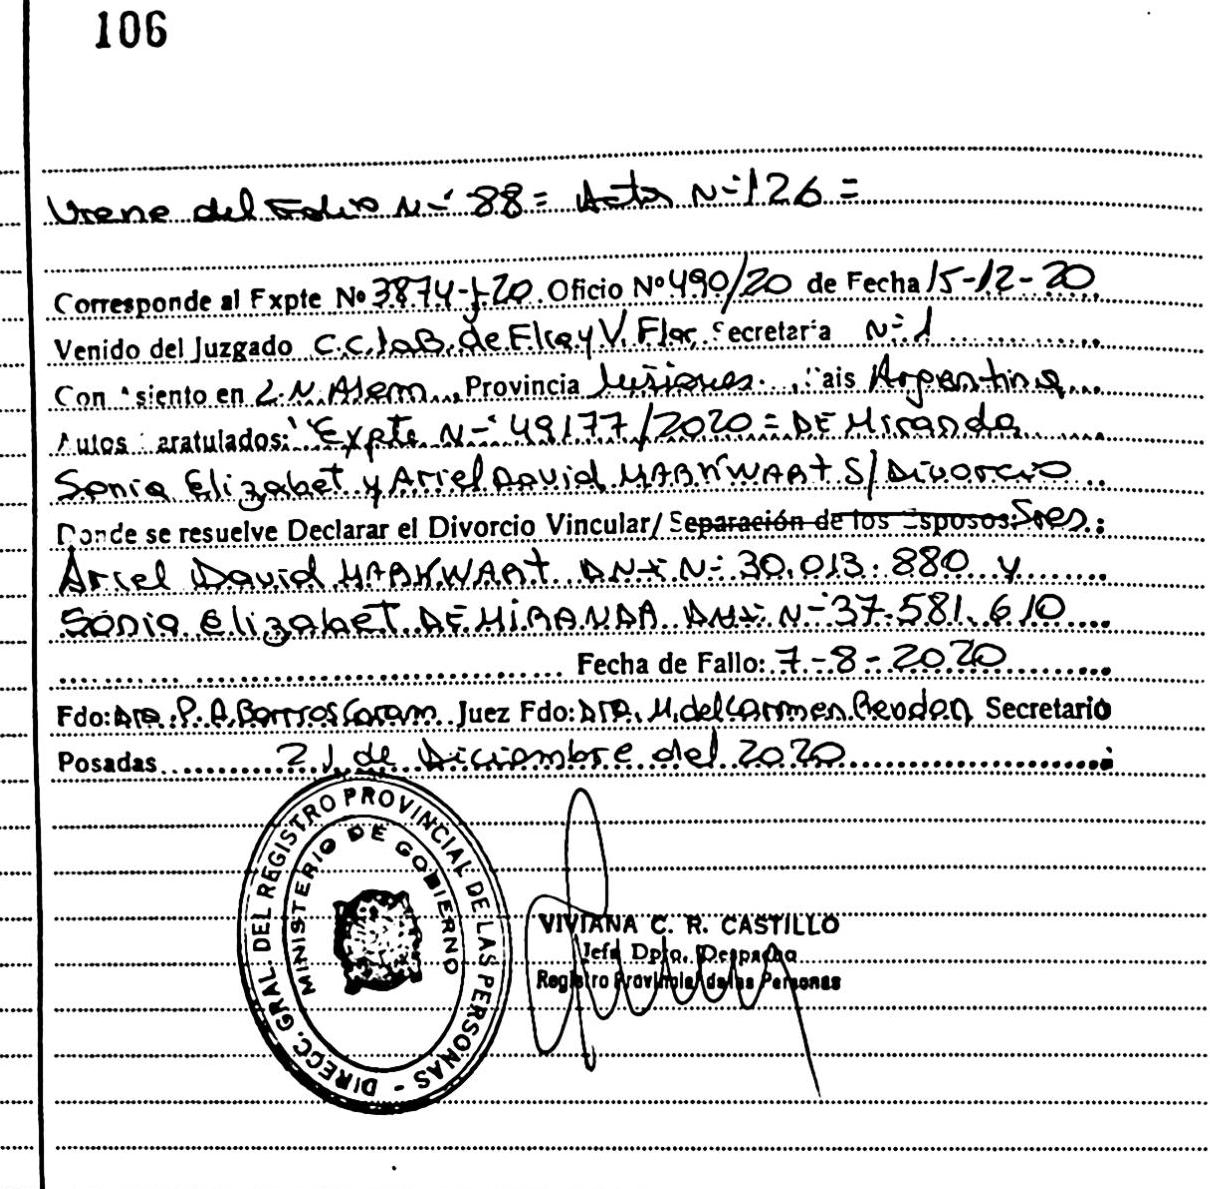 106
Viene del Folio N-º 88= Acta N-º 126=
Corresponde al Expte Nº 3874-J-20 Oficio Nº 490/20 de Fecha 15-12-20
Venido del Juzgado C.C.LaB. de Flia y V. Flar Secretaria N-º 1
Con Asiento en L.N. Alem, Provincia Misiones, Pais Argentina
Autos Caratulados: "Expte N-º 49177/2020= DE Miranda
Sonia Elizabet y Ariel David MARKWART S/ Divorcio
Donde se resuelve Declarar el Divorcio Vincular/ Separación de los Esposos: Sres.:
Ariel David MARKWART DNI N-º 30.013.880 y
Sonia Elizabet DE MIRANDA DNI N-º 37.581.610
Fecha de Fallo: 7-8-2020
Fdo: Dra. P. A. Barrios Caram Juez Fdo: Dra. M. del Carmen Secretario
Posadas 21 de Diciembre del 2020
DIRECC. GRAL. DEL REGISTRO PROVINCIAL DE LAS PERSONAS - MISIONES
MINISTERIO DE GOBIERNO
VIVIANA C. R. CASTILLO
Jefa Dpto. Despacho
Registro Provincial de las Personas